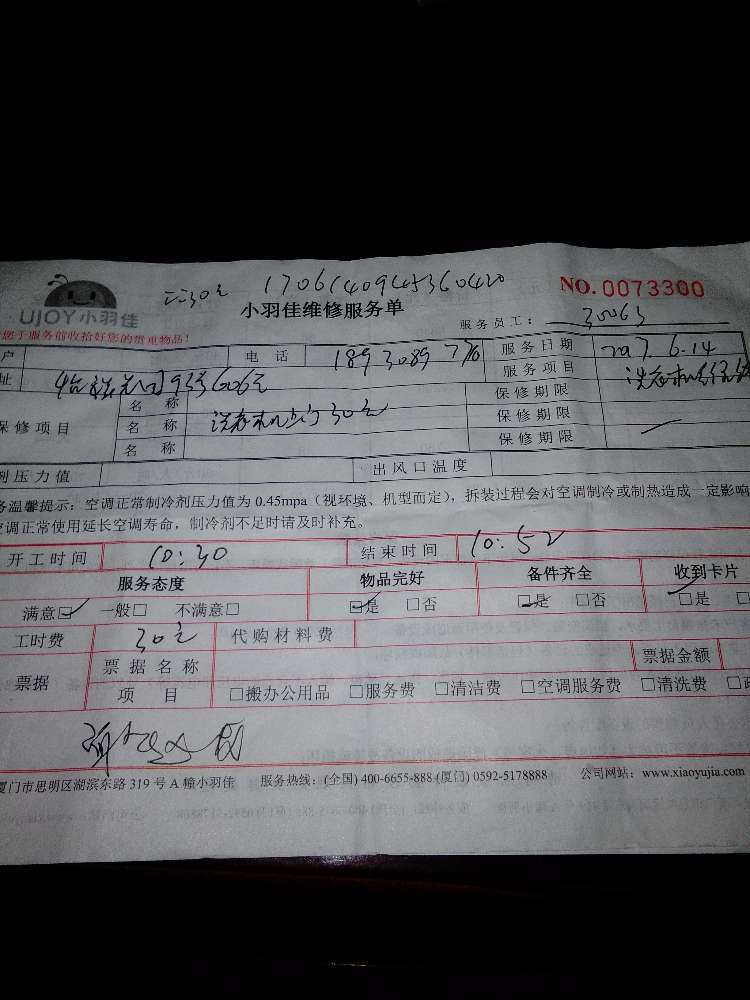 1706140945360420
NO.0073300
UJOY小羽佳
小羽佳维修服务单
服务员工: 30063
您于服务前收拾好您的贵重物品!
户 电 话 服务日期 2017.6.14
址 606 服务项目
保修期限
保修项目 名 称 洗衣机 30元 保修期限
名 称
名 称 保修期限
剂压力值 出风口温度
务温馨提示:空调正常制冷剂压力值为 0.45mpa(视环境、机型而定),拆装过程会对空调制冷或制热造成一定影响
空调正常使用延长空调寿命,制冷剂不足时请及时补充。
开工时间 10:30 结束时间 10:52
服务态度 物品完好 备件齐全 收到卡片
满意☑ 一般□ 不满意□ ☑是 □否 ☑是 □否 □是 □
工时费 30元 代购材料费
票据 票据名称 票据金额
项 目 □搬办公用品 □服务费 □清洁费 □空调服务费 □清洗费 □
厦门市思明区湖滨东路 319 号 A 幢小羽佳 服务热线:(全国) 400-6655-888 (厦门) 0592-5178888 公司网站:www.xiaoyujia.com